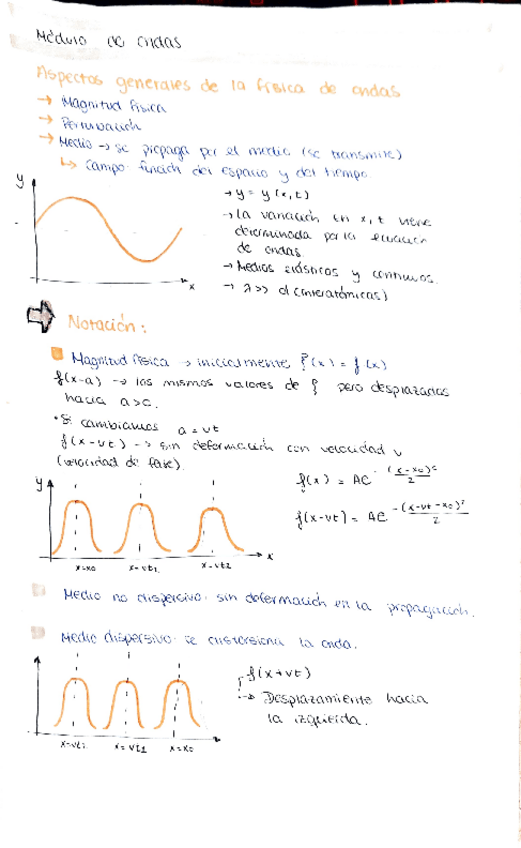 Módulo de ondas
Aspectos generales de la física de ondas
→ Magnitud física
→ Perturbación
→ Medio → se propaga por el medio (se transmite)
↳ Campo función del espacio y del tiempo.
y
x
→ y = y(x,t)
→ La variación en x, t viene
determinada por la ecuación
de ondas.
→ Medios elásticos y continuos.
→ λ >> d (interatómicas)
Notación:
Magnitud física → inicialmente ξ(x) = f(x)
f(x-a) → los mismos valores de ξ pero desplazados
hacia a>0.
• Si cambiamos a = vt
f(x-vt) → sin deformación con velocidad v
(velocidad de fase).
f(x) = Ae^-(x-x0)²/2
f(x-vt) = Ae^-(x-vt-x0)²/2
y
x
x=x0 x-vt1 x-vt2
Medio no dispersivo: sin deformación en la propagación.
Medio dispersivo: se distorsiona la onda.
f(x+vt)
→ Desplazamiento hacia
la izquierda.
x=vt2 x=vt1 x=x0